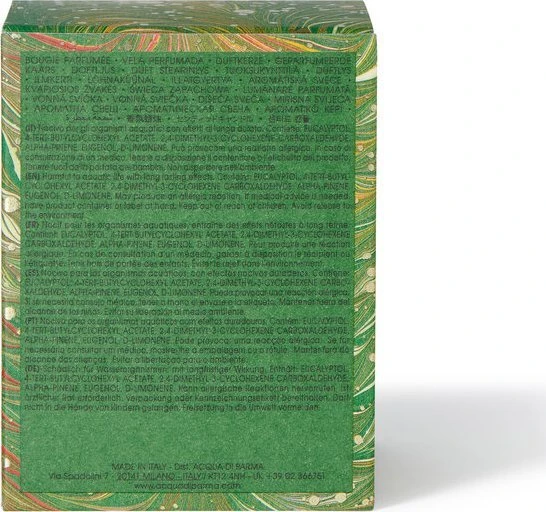 BOUGIE PARFUMÉE • VELA PERFUMADA • DUFTKERZE • GEPARFUMEERDE
KAARS • DOFTLJUS • DUFT STEARINLYS • TUOKSUKYNTTILÄ • DUFTLYS
• ILMKERTI • LÕHNAKÜÜNAL • ILLATGYERTYA • AROMĀTISKĀ SVECE •
KVAPIOSIOS ŽVAKĖS • ŚWIECA ZAPACHOWA • LUMÂNARE PARFUMATA
• VONNÁ SVIEČKA • VONNÁ SVÍČKA • DIŠEČA SVEČA • MIRISNA SVIJEĆA
(IT) Nocivo per gli organismi acquatici con effetti di lunga durata. Contiene: EUCALYPTOL,
4-TERT-BUTYLCYCLOHEXYL ACETATE, 2,4-DIMETHYL-3-CYCLOHEXENE CARBOXALDEHYDE,
ALPHA-PINENE, EUGENOL, D-LIMONENE. Può provocare una reazione allergica. In caso di
consultazione di un medico, tenere a disposizione il contenitore o l'etichetta del prodotto.
Tenere fuori dalla portata dei bambini. Non disperdere nell'ambiente.
(EN) Harmful to aquatic life with long lasting effects. Contains: EUCALYPTOL, 4-TERT-BUTYL
CYCLOHEXYL ACETATE, 2,4-DIMETHYL-3-CYCLOHEXENE CARBOXALDEHYDE, ALPHA-PINENE,
EUGENOL, D-LIMONENE. May produce an allergic reaction. If medical advice is needed,
have product container or label at hand. Keep out of reach of children. Avoid release to
the environment.
(FR) Nocif pour les organismes aquatiques, entraîne des effets néfastes à long terme.
Contient: EUCALYPTOL, 4-TERT-BUTYLCYCLOHEXYL ACETATE, 2,4-DIMETHYL-3-CYCLOHEXENE
CARBOXALDEHYDE, ALPHA-PINENE, EUGENOL, D-LIMONENE. Peut produire une réaction
allergique. En cas de consultation d'un médecin, garder à disposition le récipient ou
l'étiquette. Tenir hors de portée des enfants. Éviter le rejet dans l'environnement.
(ES) Nocivo para los organismos acuáticos, con efectos nocivos duraderos. Contiene:
EUCALYPTOL, 4-TERT-BUTYLCYCLOHEXYL ACETATE, 2,4-DIMETHYL-3-CYCLOHEXENE
CARBOXALDEHYDE, ALPHA-PINENE, EUGENOL, D-LIMONENE. Puede provocar una reacción alérgica.
Si se necesita consejo médico, tener a mano el envase o la etiqueta. Mantener fuera del
alcance de los niños. Evitar su liberación al medio ambiente.
(PT) Nocivo para os organismos aquáticos com efeitos duradouros. Contém: EUCALYPTOL,
4-TERT-BUTYLCYCLOHEXYL ACETATE, 2,4-DIMETHYL-3-CYCLOHEXENE CARBOXALDEHYDE,
ALPHA-PINENE, EUGENOL, D-LIMONENE. Pode provocar uma reacção alérgica. Se for
necessário consultar um médico, mostre-lhe a embalagem ou o rótulo. Manter fora do
alcance das crianças. Evitar a libertação para o ambiente.
(DE) Schädlich für Wasserorganismen, mit langfristiger Wirkung. Enthält: EUCALYPTOL,
4-TERT-BUTYLCYCLOHEXYL ACETATE, 2,4-DIMETHYL-3-CYCLOHEXENE CARBOXALDEHYDE,
ALPHA-PINENE, EUGENOL, D-LIMONENE. Kann allergische Reaktionen hervorrufen. Ist
ärztlicher Rat erforderlich, Verpackung oder Kennzeichnungsetikett bereithalten. Darf
nicht in die Hände von Kindern gelangen. Freisetzung in die Umwelt vermeiden.
MADE IN ITALY - Dist. ACQUA DI PARMA
Via Spadolini 7 - 20141 MILANO - ITALY / KT12 4NH - UK +39 02
www.acquadiparma.com